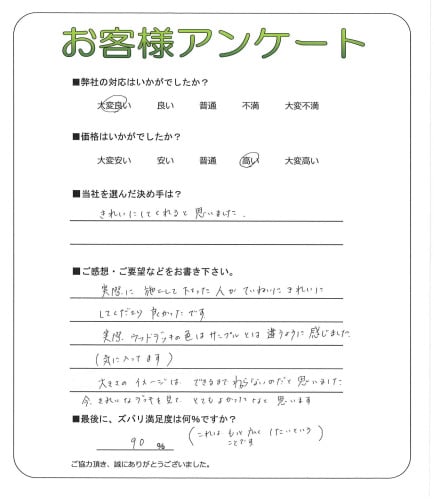 お客様アンケート
■弊社の対応はいかがでしたか？
大変良い 良い 普通 不満 大変不満
■価格はいかがでしたか？
大変安い 安い 普通 高い 大変高い
■当社を選んだ決め手は？
きれいにしてくれると思いました。
■ご感想・ご要望などをお書き下さい。
実際に施工して下さった人がていねいにきれいに
してくださり良かったです
実際、ウッドデッキの色はサンプルとは違うように感じました
(気に入ってます)
大きさのイメージは、できるまでわからないのだと思いました
今、きれいなデッキを見て、とてもよかったなと思います
■最後に、ズバリ満足度は何%ですか？
90 %
(これはもっと広くしたいという
ことです)
ご協力頂き、誠にありがとうございました。